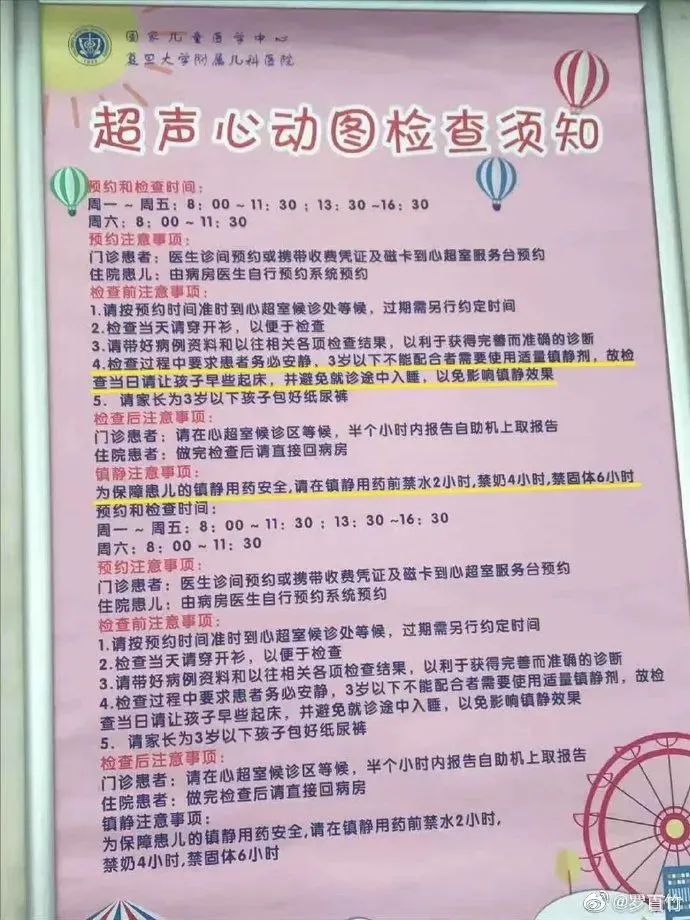 国家儿童医学中心
复旦大学附属儿科医院
超声心动图检查须知
预约和检查时间：
周一 ~ 周五：8：00 ~ 11：30 ；13：30 ~16：30
周六：8：00 ~ 11：30
预约注意事项：
门诊患者：医生诊间预约或携带收费凭证及磁卡到心超室服务台预约
住院患儿：由病房医生自行预约系统预约
检查前注意事项：
1.请按预约时间准时到心超室候诊处等候，过期需另行约定时间
2.检查当天请穿开衫，以便于检查
3.请带好病例资料和以往相关各项检查结果，以利于获得完善而准确的诊断
4.检查过程中要求患者务必安静，3岁以下不能配合者需要使用适量镇静剂，故检
查当日请让孩子早些起床，并避免就诊途中入睡，以免影响镇静效果
5．请家长为3岁以下孩子包好纸尿裤
检查后注意事项：
门诊患者：请在心超室候诊区等候，半个小时内报告自助机上取报告
住院患者：做完检查后请直接回病房
镇静注意事项：
为保障患儿的镇静用药安全,请在镇静用药前禁水2小时,禁奶4小时,禁固体6小时
预约和检查时间：
周一 ~ 周五：8：00 ~ 11：30 ；13：30 ~16：30
周六：8：00 ~ 11：30
预约注意事项：
门诊患者：医生诊间预约或携带收费凭证及磁卡到心超室服务台预约
住院患儿：由病房医生自行预约系统预约
检查前注意事项：
1.请按预约时间准时到心超室候诊处等候，过期需另行约定时间
2.检查当天请穿开衫，以便于检查
3.请带好病例资料和以往相关各项检查结果，以利于获得完善而准确的诊断
4.检查过程中要求患者务必安静，3岁以下不能配合者需要使用适量镇静剂，故检
查当日请让孩子早些起床，并避免就诊途中入睡，以免影响镇静效果
5．请家长为3岁以下孩子包好纸尿裤
检查后注意事项：
门诊患者：请在心超室候诊区等候，半个小时内报告自助机上取报告
住院患者：做完检查后请直接回病房
镇静注意事项：
为保障患儿的镇静用药安全,请在镇静用药前禁水2小时,
禁奶4小时,禁固体6小时
@罗百竹